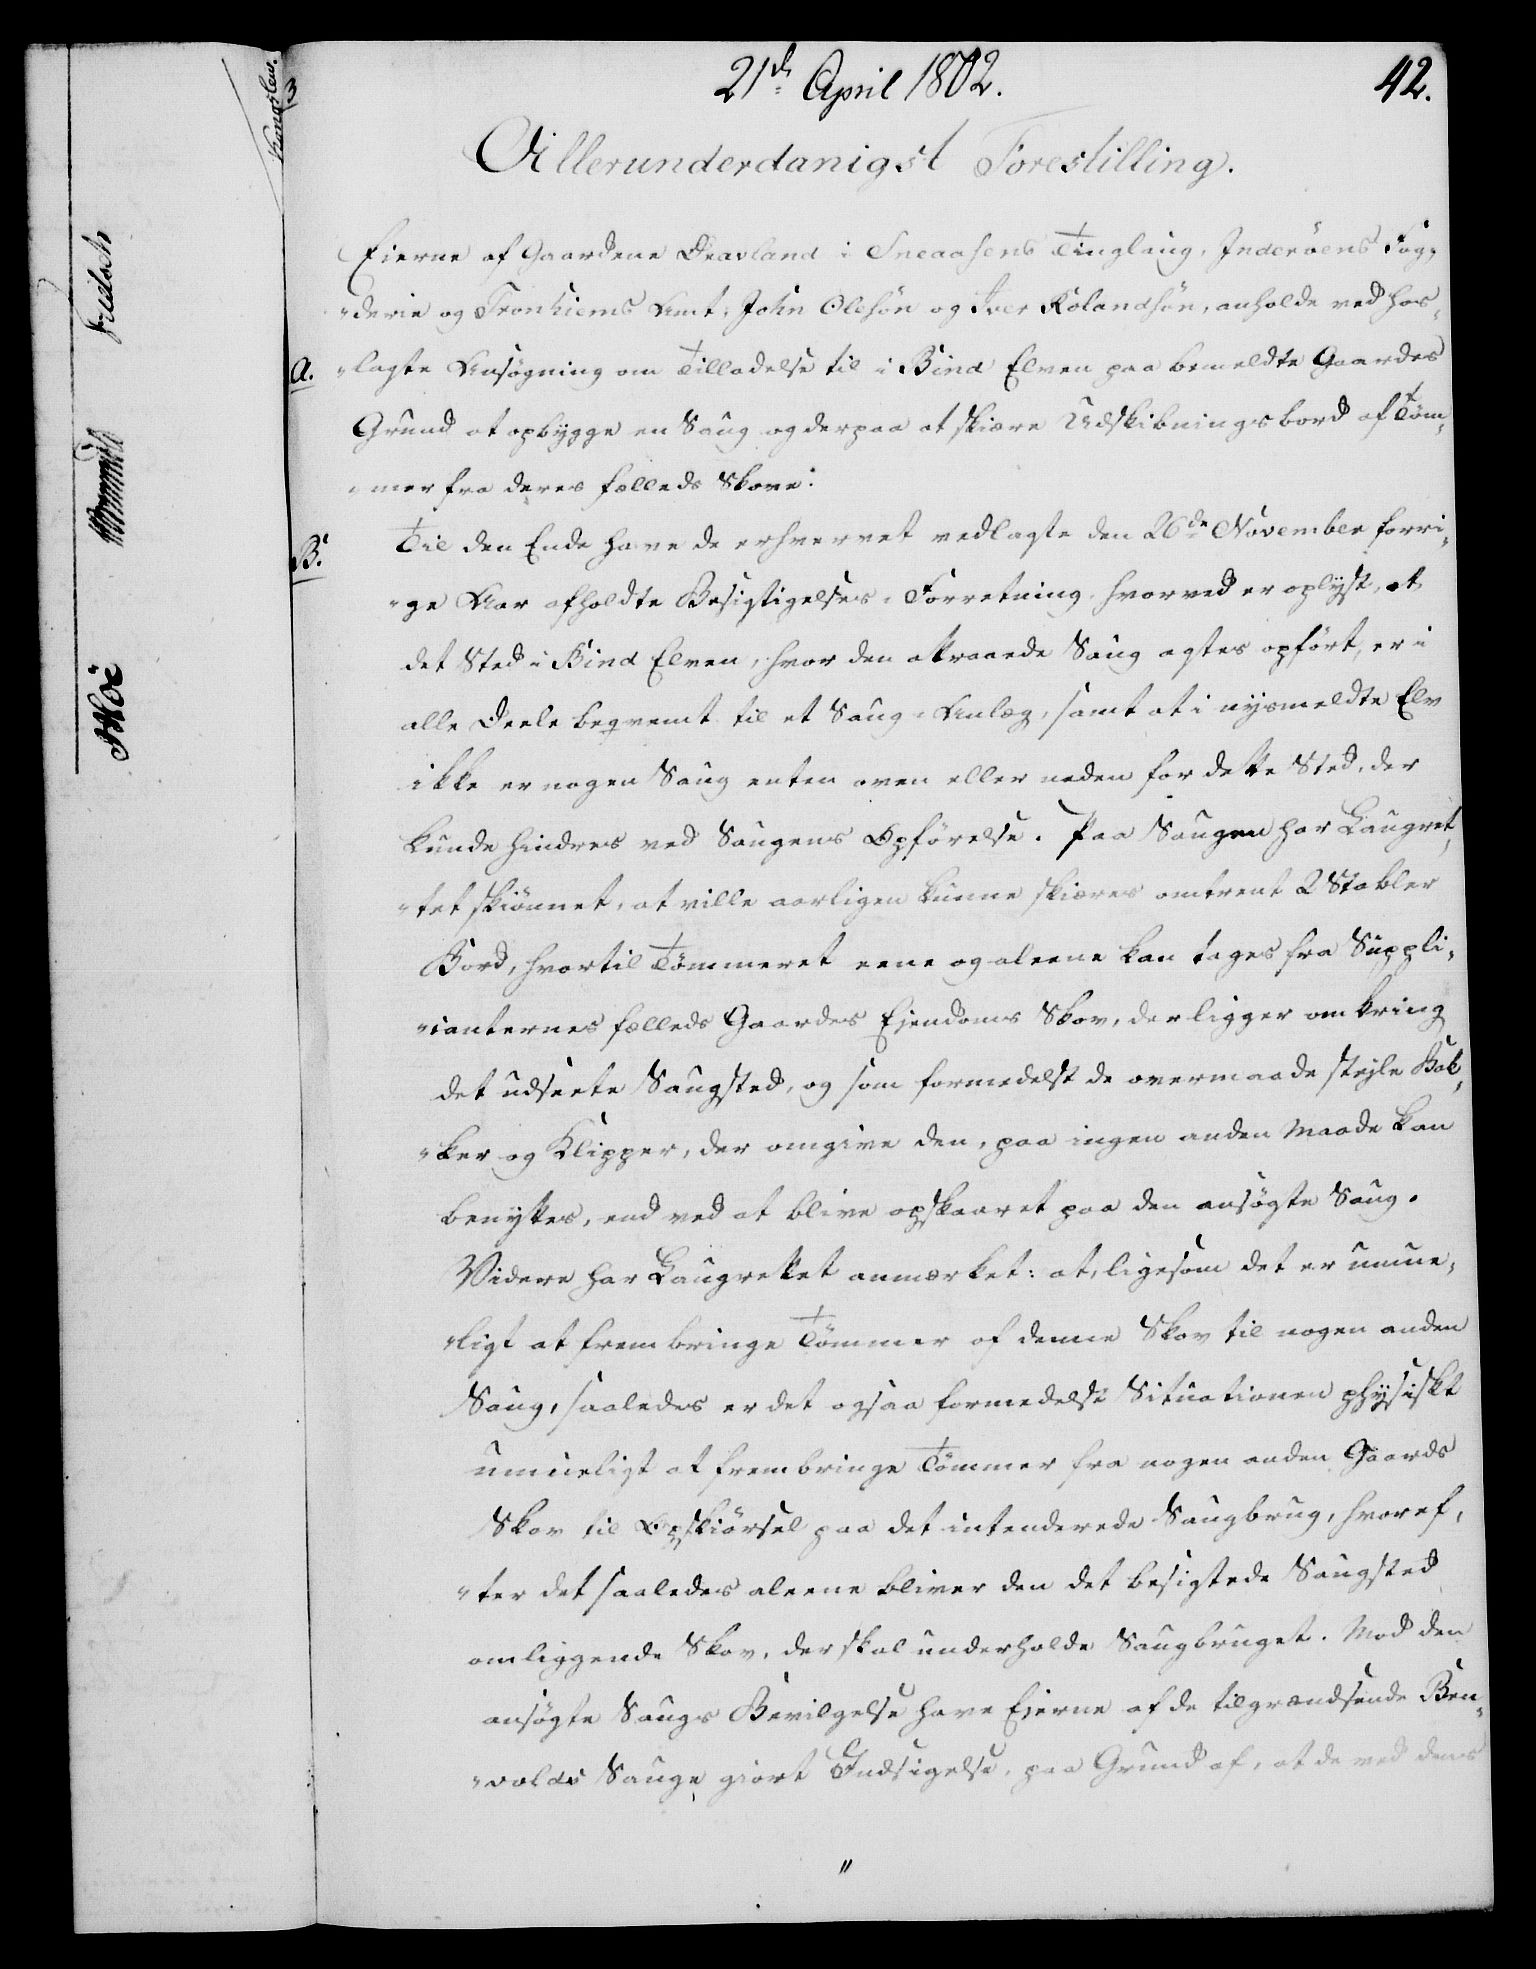 21de April 1802.
42.
Allerunderdanigst Forestilling.
Eierne af Gaardene Deavland i Sneaasens Tinglaug, Inderöens Fog„
„derie og Tronhiems Amt, John Olesön og Iver Rolandsön, anholde ved hos„
A. „lagte Ansögning om Tilladelse til i Bind Elven paa bemeldte Gaardes
Grund at opbygge en Saug og derpaa at skiære Udskibningsbord af Töm„
„mer fra deres fælleds Skove:
B. Til den Ende have de erhvervet vedlagte den 26de November forri„
„ge Aar afholdte Besigtigelses-Forretning, hvorved er oplyst, at
det Sted i Bind Elven, hvor den attraaede Saug agtes opfört, er i
alle Deele beqvemt til et Saug-Anlæg, samt at i nysmeldte Elv
ikke er nogen Saug enten oven eller neden for dette Sted, der
kunde hindres ved Saugens Opförelse. Paa Saugen har Laugret„
„tet skiönnet, at ville aarligen kunne skiæres omtrent 2 Stabler
Bord, hvortil Tömmeret eene og aleene kan tages fra Suppli„
„canternes fælleds Gaardes Ejendoms Skov, der ligger omkring
det udseete Saugsted, og som formedelst de overmaade stejle Bak„
„ker og Klipper, der omgive den, paa ingen anden Maade kan
benyttes, end ved at blive opskaaret paa den ansögte Saug.
Videre har Laugrettet anmærket: at, ligesom det er umue„
„ligt at frembringe Tömmer af denne Skov til nogen anden
Saug, saaledes er det ogsaa formedelst Situationen physiskt
umueligt at frembringe Tömmer fra nogen anden Gaards
Skov til Opskiörsel paa det intenderede Saugbrug, hvoref„
„ter det saaledes aleene bliver den det besigtede Saugsted
omliggende Skov, der skal underholde Saugbruget. Mod den
ansögte Saugs Bevilgelse have Eierne af de tilgrændsende Ben„
„volds Sauge giort Indsigelse, paa Grund af, at de ved dens
„
Kongslew.
Fritsch
Moe